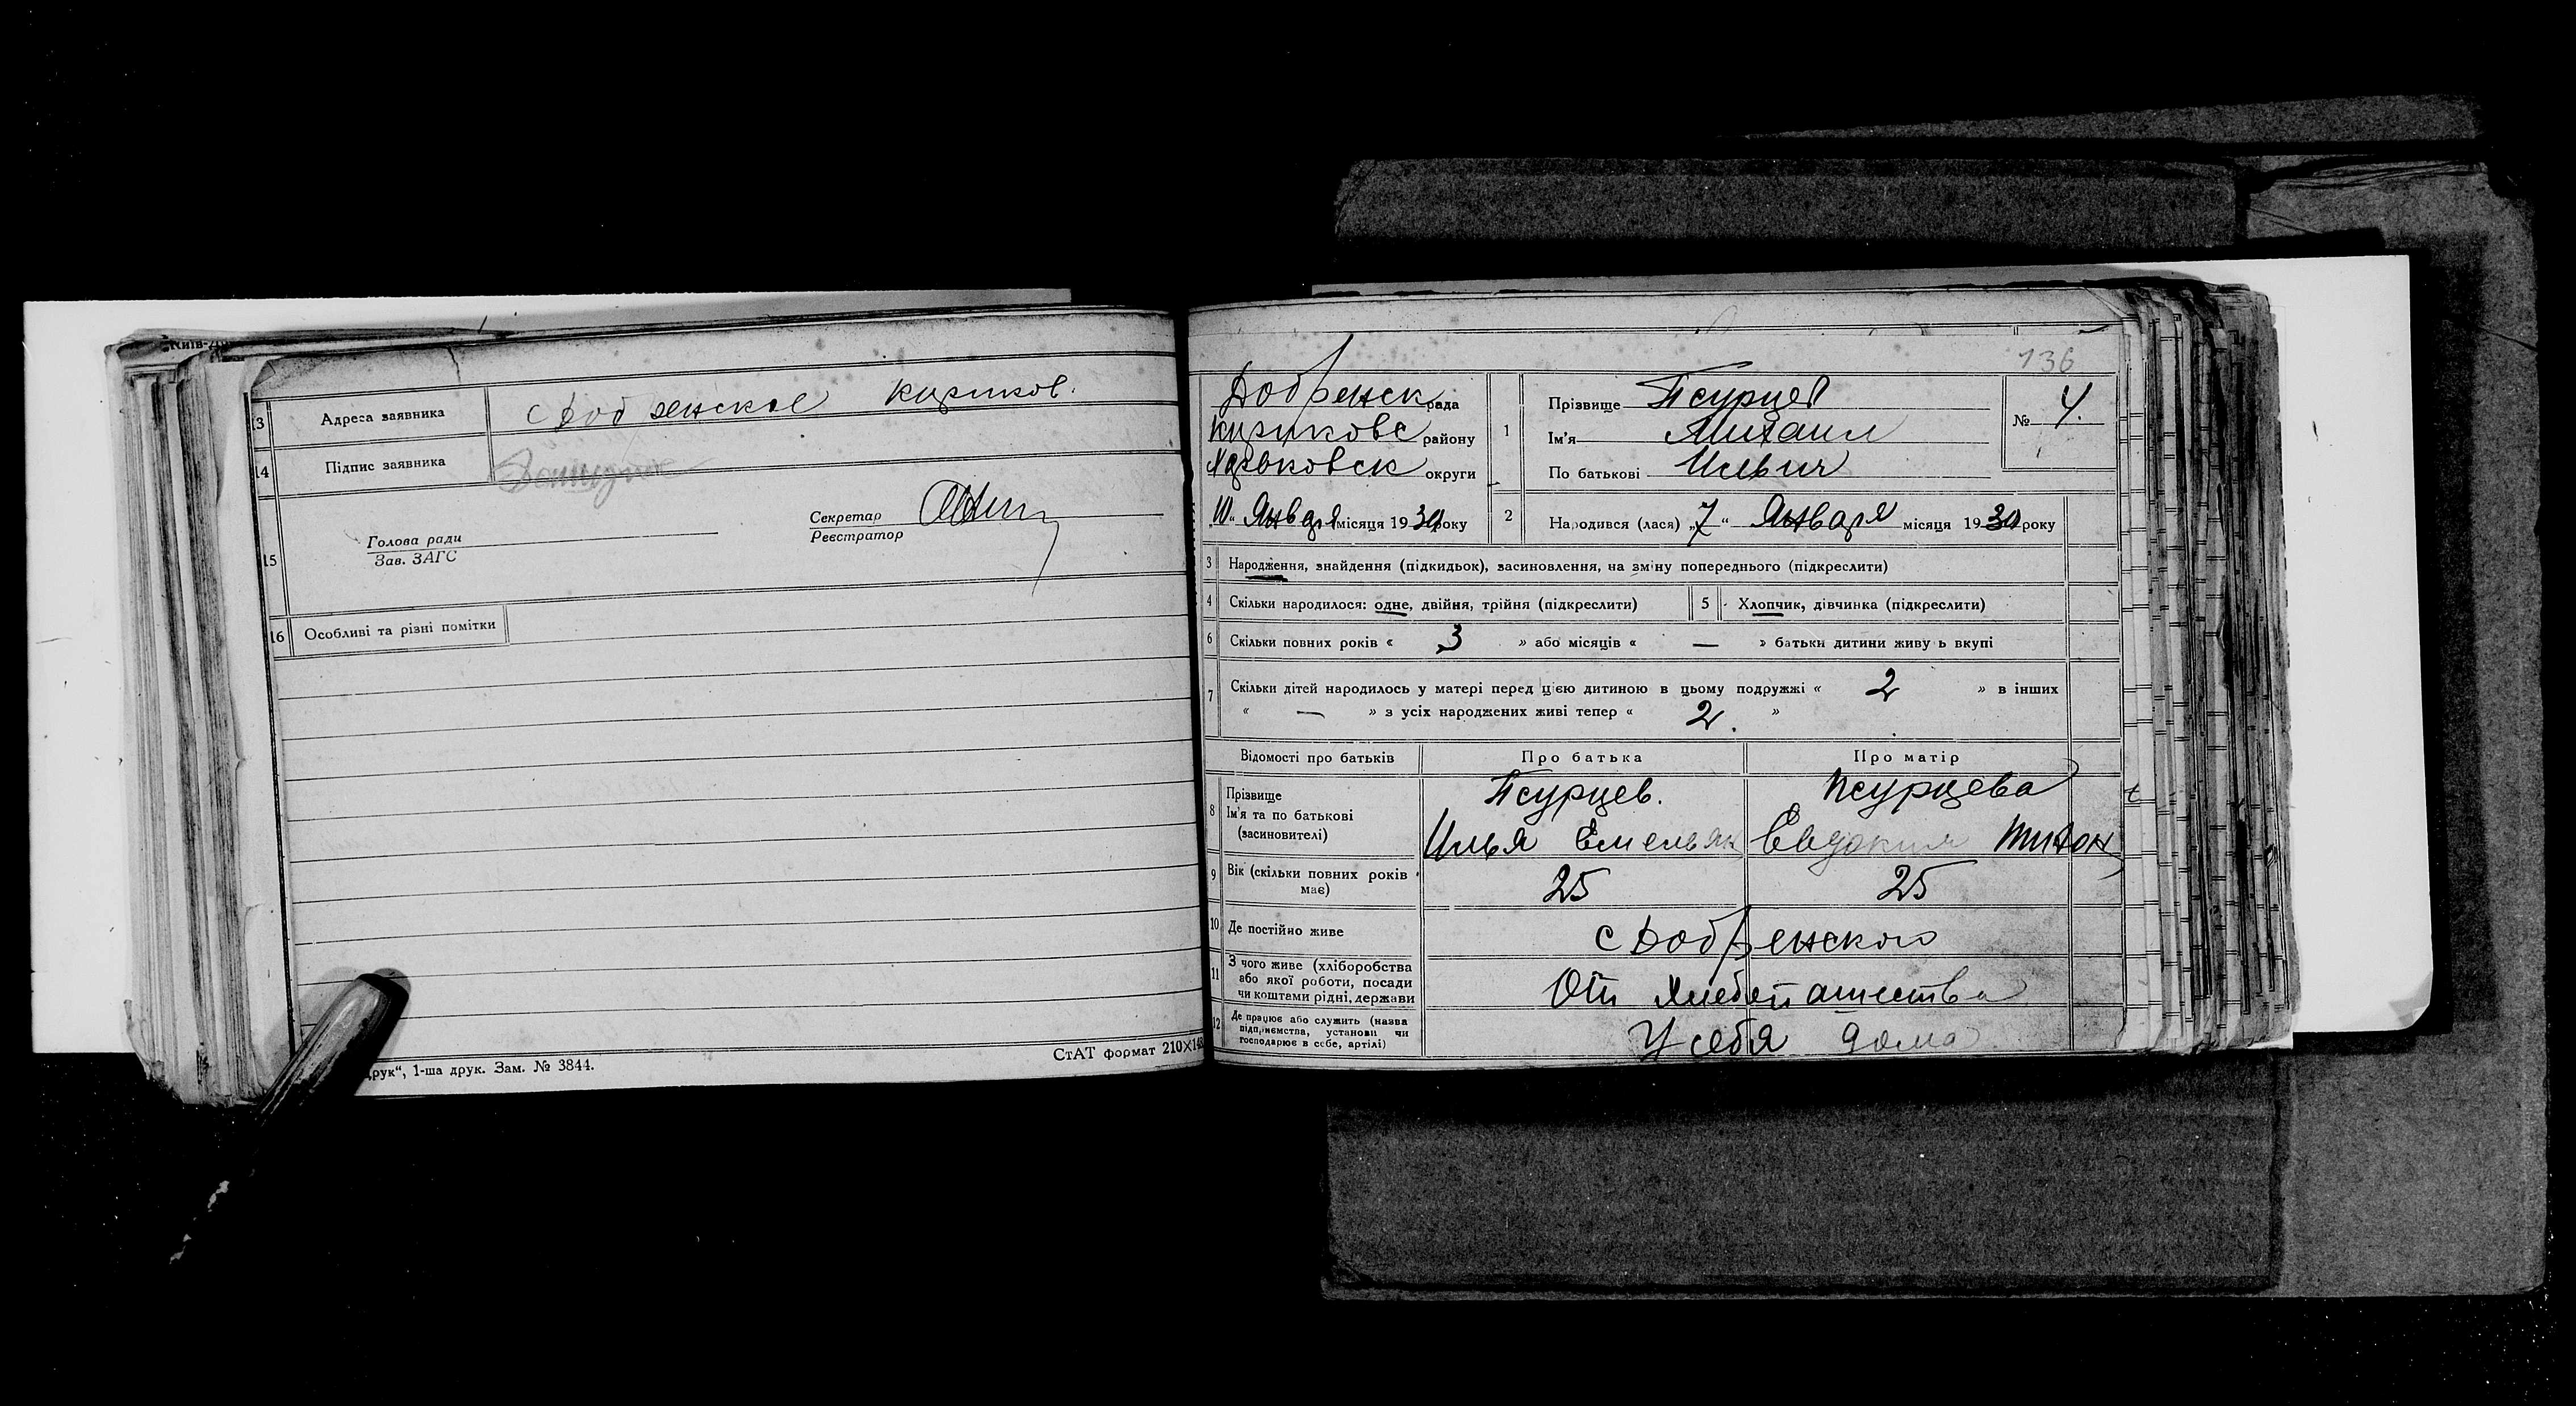 Київ-Д
13 Адреса заявника с Добренское Куриков.
14 Підпис заявника
15 Голова ради
Зав. ЗАГС
Секретар
Реєстратор
16 Особливі та різні помітки
друк“, 1-ша друк. Зам. № 3844.
СтАТ формат 210×14
136
Добренск рада
района районy
Харьковск округи
„10“ Января місяця 1930 року
1 Прізвище Псурцев
Ім'я Михаил
По батькові Ильич
№ 4.
2 Народився (лася) „7“ Января місяця 1930 року
3 Народження, знайдення (підкидьок), засиновлення, на зміну попереднього (підкреслити)
4 Скільки народилося: одне, двійня, трійня (підкреслити)
5 Хлопчик, дівчинка (підкреслити)
6 Скільки повних років « 3 » або місяців « — » батьки дитини живуть вкупі
7 Скільки дітей народилось у матері перед цією дитиною в цьому подружжі « 2 » в інших
« — » з усіх народжених живі тепер « 2. »
Відомості про батьків Про батька Про матір
8 Прізвище
Ім'я та по батькові
(засиновителі)
Псурцев.
Илья Емельян
Псурцева
Евдокия Тихон
9 Вік (скільки повних років має) 25 25
10 Де постійно живе с Добренского
11 З чого живе (хліборобства
або якої роботи, посади
чи коштами рідні, держави
От хлебопашества
12 Де працює або служить (назва
підприємства, установи чи
господарює в себе, артілі)
У себя дома